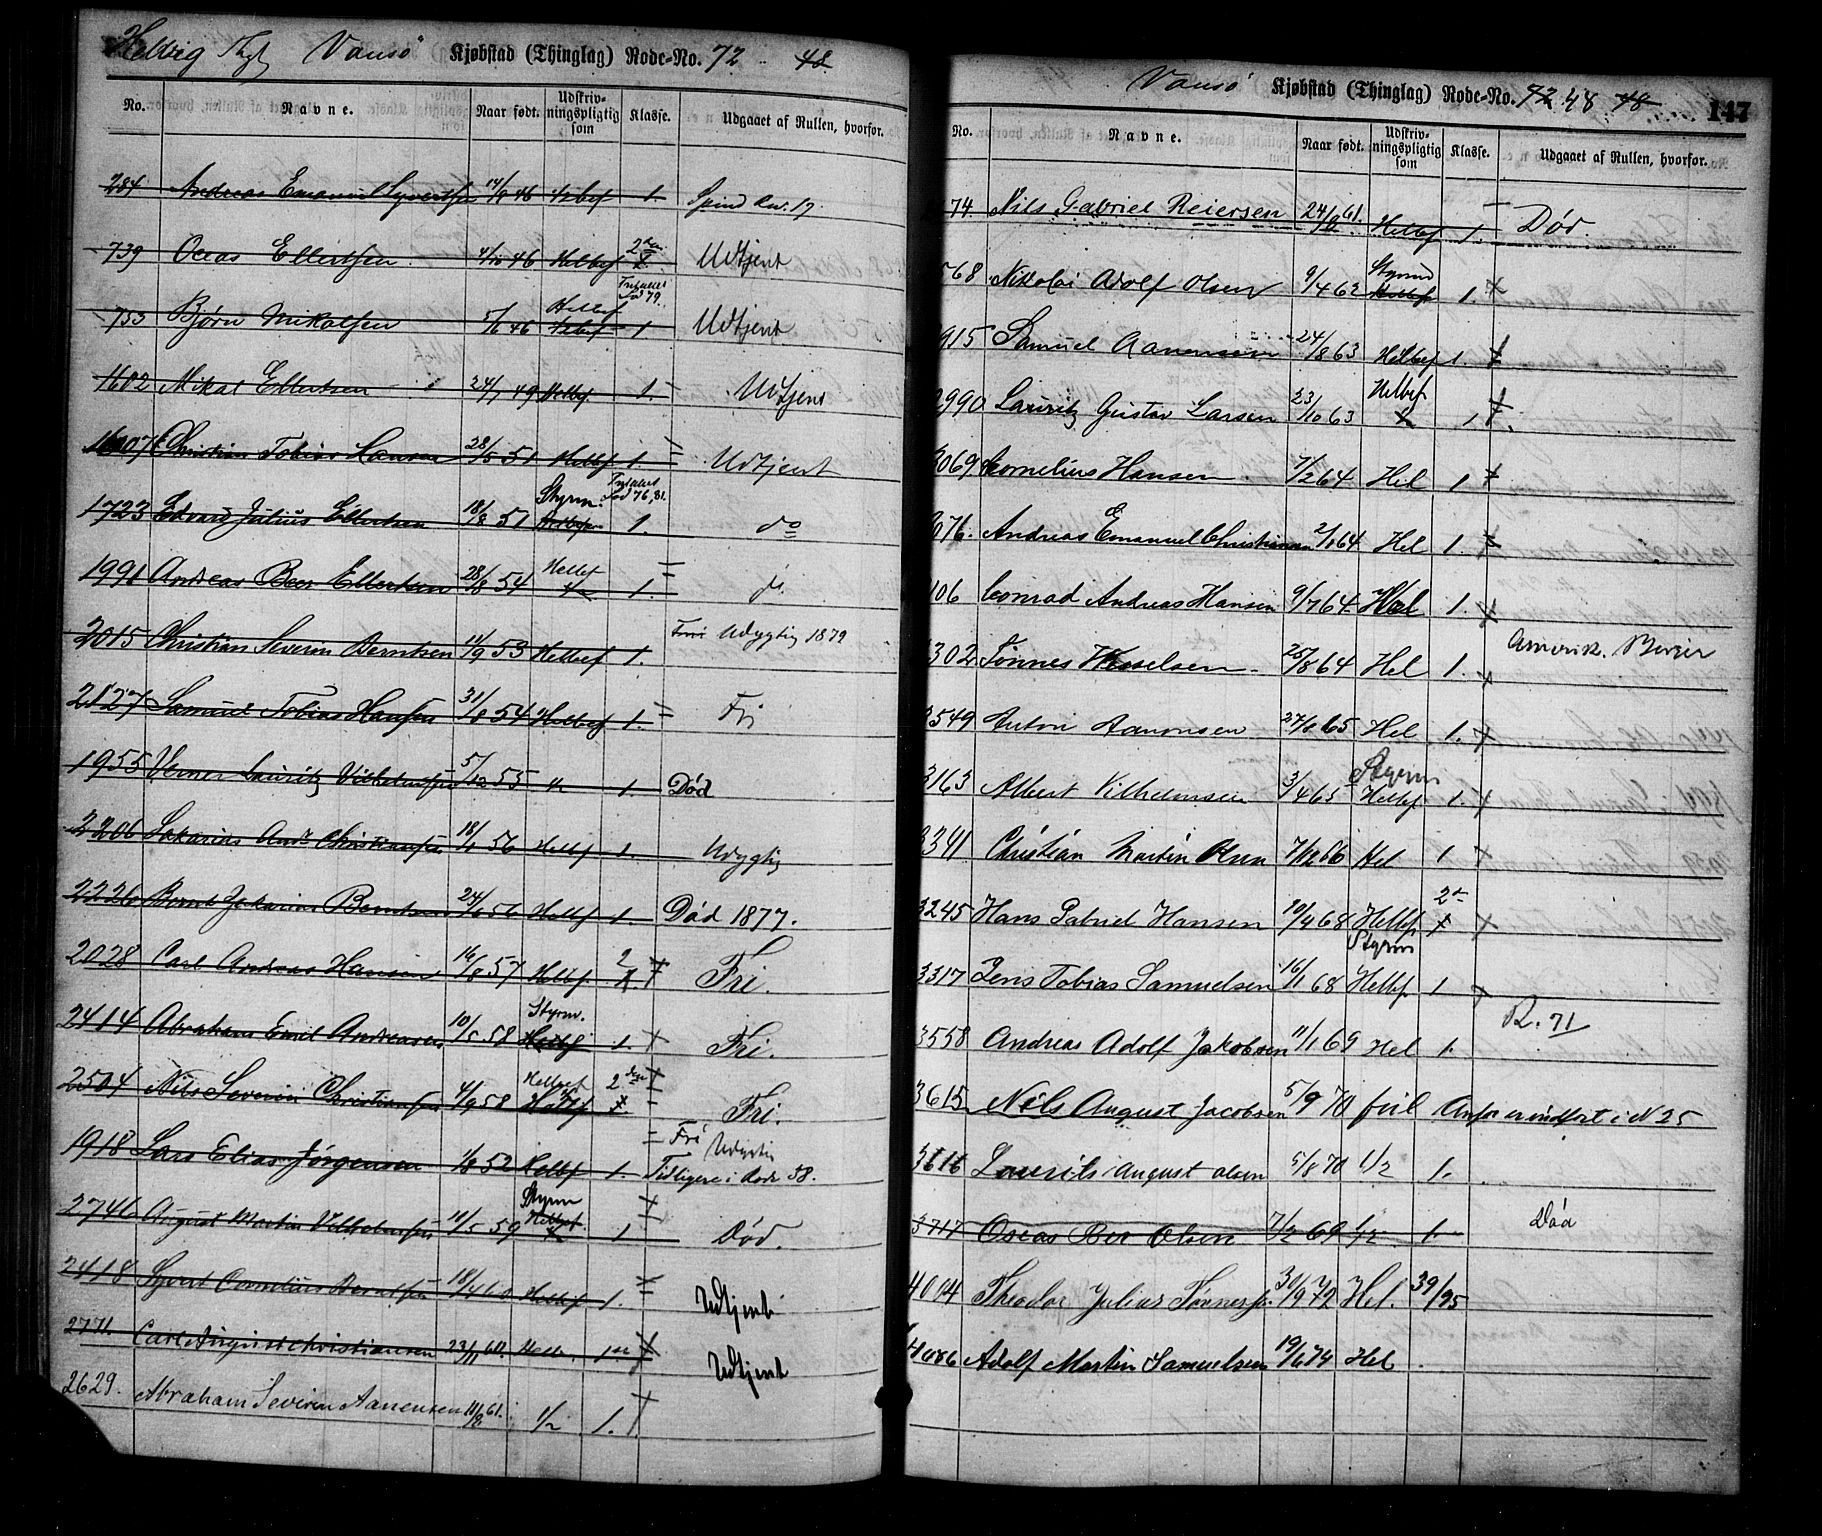 Helvig Vansø Kjøbstad (Thinglag) Rode-No. 72 48
No. Navne. Naar født. Udskrivningspligtig som Klasse. Udgaaet af Rullen, hvorfor.
284 Andreas Emanuel Syvertsen 46 1. Spind
739 Oceas Ellertsen 46 Helbef Udtjent
753 Bjørn Mikalsen 46 Helbef 1 Udtjent
1602 Mikal Ellertsen 24/7 49 Helbef 1. Udtjent
Christian Tobias Hansen 28/5 51 Helbef 1. Udtjent
1723 Edvard Julius Ellertsen 18/8 51 Styrm. 1. do
1991 Andreas Beer Ellertsen 28/8 54 Helbef 1. do
2015 Christian Severin Berntsen 11/9 53 Helbef 1. Fri Udygtig 1879
2127 Samuel Tobias Hansen 31/8 54 Helbef 1. Fri
1955 Verner Lauritz Vilhelmsen 5/12 55 1. Død
2206 Sakarias Andr Christiansen 18/ 56 Helbf 1. Udygtig
2226 Bernt Zakarias Berntsen 24/ 56 Helbf 1. Død 1877.
2028 Carl Andreas Hansen 16/8 57 Helbf. 2 Fri.
2414 Abraham Emil Andreasen 10/5 58 Styrm. Helbf 1. Fri.
2504 Nils Severin Christiansen 4/9 58 Helbef 2den Fri.
1918 Lars Elias Jørgensen 1/8 52 Helbef 1. Fri Udygtig Tidligere i Rode 58.
2746 August Martin Vilhelmsen 10/5 59 Styrm Helbef. 1 Død.
2418 Syvert Cornelius Berntsen 18/4 60 Helbef 1. Udtjent
2771. Carl August Christiansen 23/11 60. Helb. 1 Udtjent
2629. Abraham Severin Aanensen 11/8 61. 1/2 1.
Vansø Kjøbstad (Thinglag) Rode-No. 72 48 48 147
No. Navne. Naar født. Udskrivningspligtig som Klasse. Udgaaet af Rullen, hvorfor.
74. Nils Gabriel Reiersen 24/ 61. Helbef 1. Død.
568 Nikolai Adolf Olsen 9/4 62 Styrm Helbef 1.
915 Samuel Aanensen 24/8 63 Helbef 1.
2990 Lauritz Gustav Larsen 23/10 63 Helbef 1
3069 Cornelius Hansen 7/2 64 Hel 1
3076. Andreas Emanuel Christiansen 2/ 64 Hel 1.
106 Conrad Andreas Hansen 9/7 64 Hel 1.
302 Tønnes Wesselsen 25/8 64 Hel 1. Amerik. Borger
3549 Anton Aanonsen 27/8 65 Hel 1.
3163 Albert Vilhelmsen 3/4 65 Styrm Helbef 1.
3341 Christian Martin Olsen 7/12 66 Hel 1
3245 Hans Gabriel Hansen 10/4 68 Helbf 2d
3317 Jens Tobias Samuelsen 16/1 68 Styrm Helbf. 1
3558 Andreas Adolf Jakobsen 11/1 69 Hel 1. R. 71
3615 Nils August Jacobsen 5/9 70 feil Anføres indført i N 25
3616 Laurits August Olsen 5/8 70 1/2 1.
3717 Oseas Ber Olsen 7/2 69 1/2 1. Død
4004 Theodor Julius Tønnes. 30/9 72 Hel. 39/95
4086 Adolf Martin Samuelsen 19/6 74 Hel